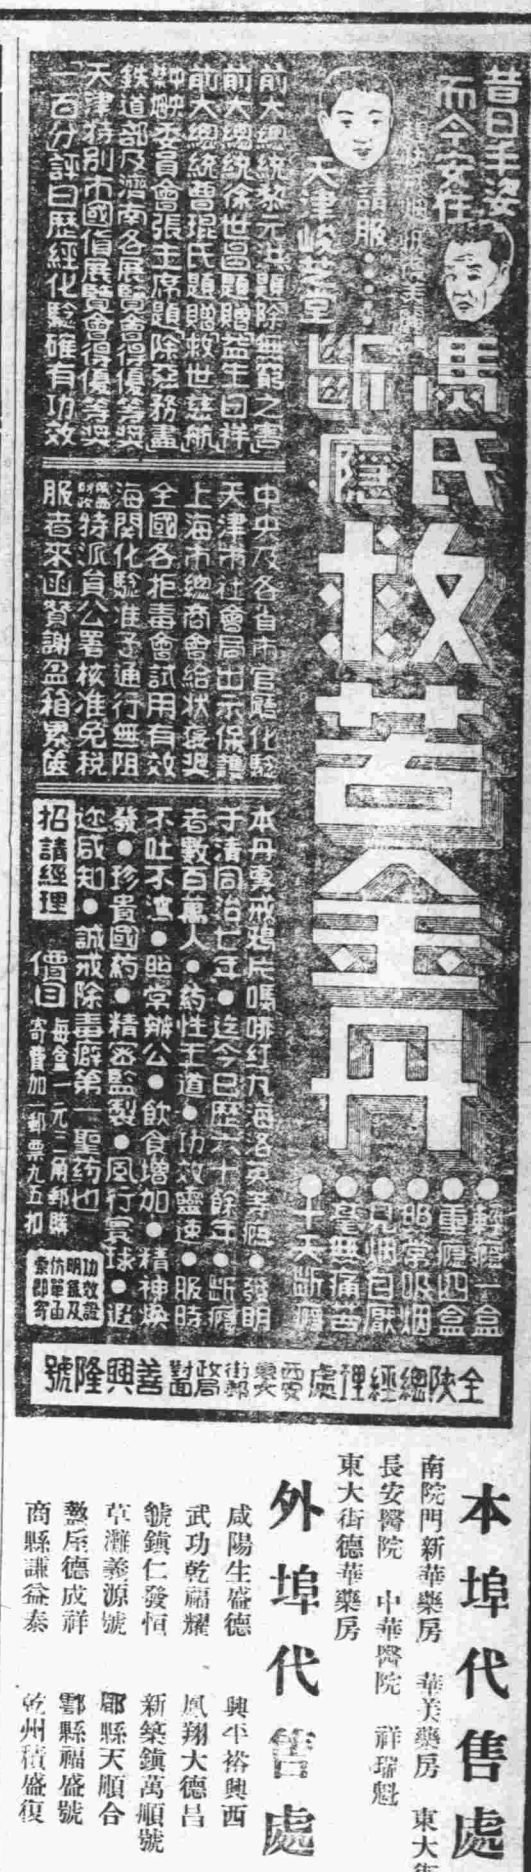 昔日丰姿
而今安在
請服
天津峻芝堂
馮氏
斷癮
救苦金丹
輕癮一盒
重癮四盒
照常吸烟
見烟自厭
毫無痛苦
十天斷癮
前大總統黎元洪題除無窮之害
前大總統徐世昌題贈益生日祥
前大總統曹琨氏題贈救世慈航
委員會張主席題除惡務盡
鉄道部及濟南各展覽會得優等奬
天津特別市國貨展覽會得優等奬
一百分評曰歷經化騐確有功效
中央及各省市官廳化騐
天津市社會局出示保護
上海市總商會給狀褒奬
全國各拒毒會試用有效
海関化騐准予通行無阻
特派員公署核准免税
服者來函賛謝盈箱累篋
本丹專戒鴉片嗎啡紅丸海洛英等癮●發明
于清同治七年●迄今已歷六十餘年●斷癮
者數百萬人●葯性王道●功效靈速●服時
不吐不瀉●照常辦公●飲食增加●精神煥
發●珍貴國葯●精密監製●風行寰球●遐
迩咸知●誠戒除毒癖第一聖葯也
招請經理
價目
每盒一元二角郵購
寄費加一郵票九五扣
功效證
明書及
仿單函
索即寄
全陝總經理處西安
街郵政局對面善興隆號
本埠代售處
南院門新華藥房 華美藥房 東大街
長安醫院 中華醫院 祥瑞魁
東大街德華藥房
外埠代售處
咸陽生盛德 興平裕興西
武功乾福耀 鳳翔大德昌
虢鎮仁發恒 新築鎮萬順號
草灘義源號 郿縣天順合
盩厔德成祥 鄠縣福盛號
商縣謙益泰 乾州積盛復